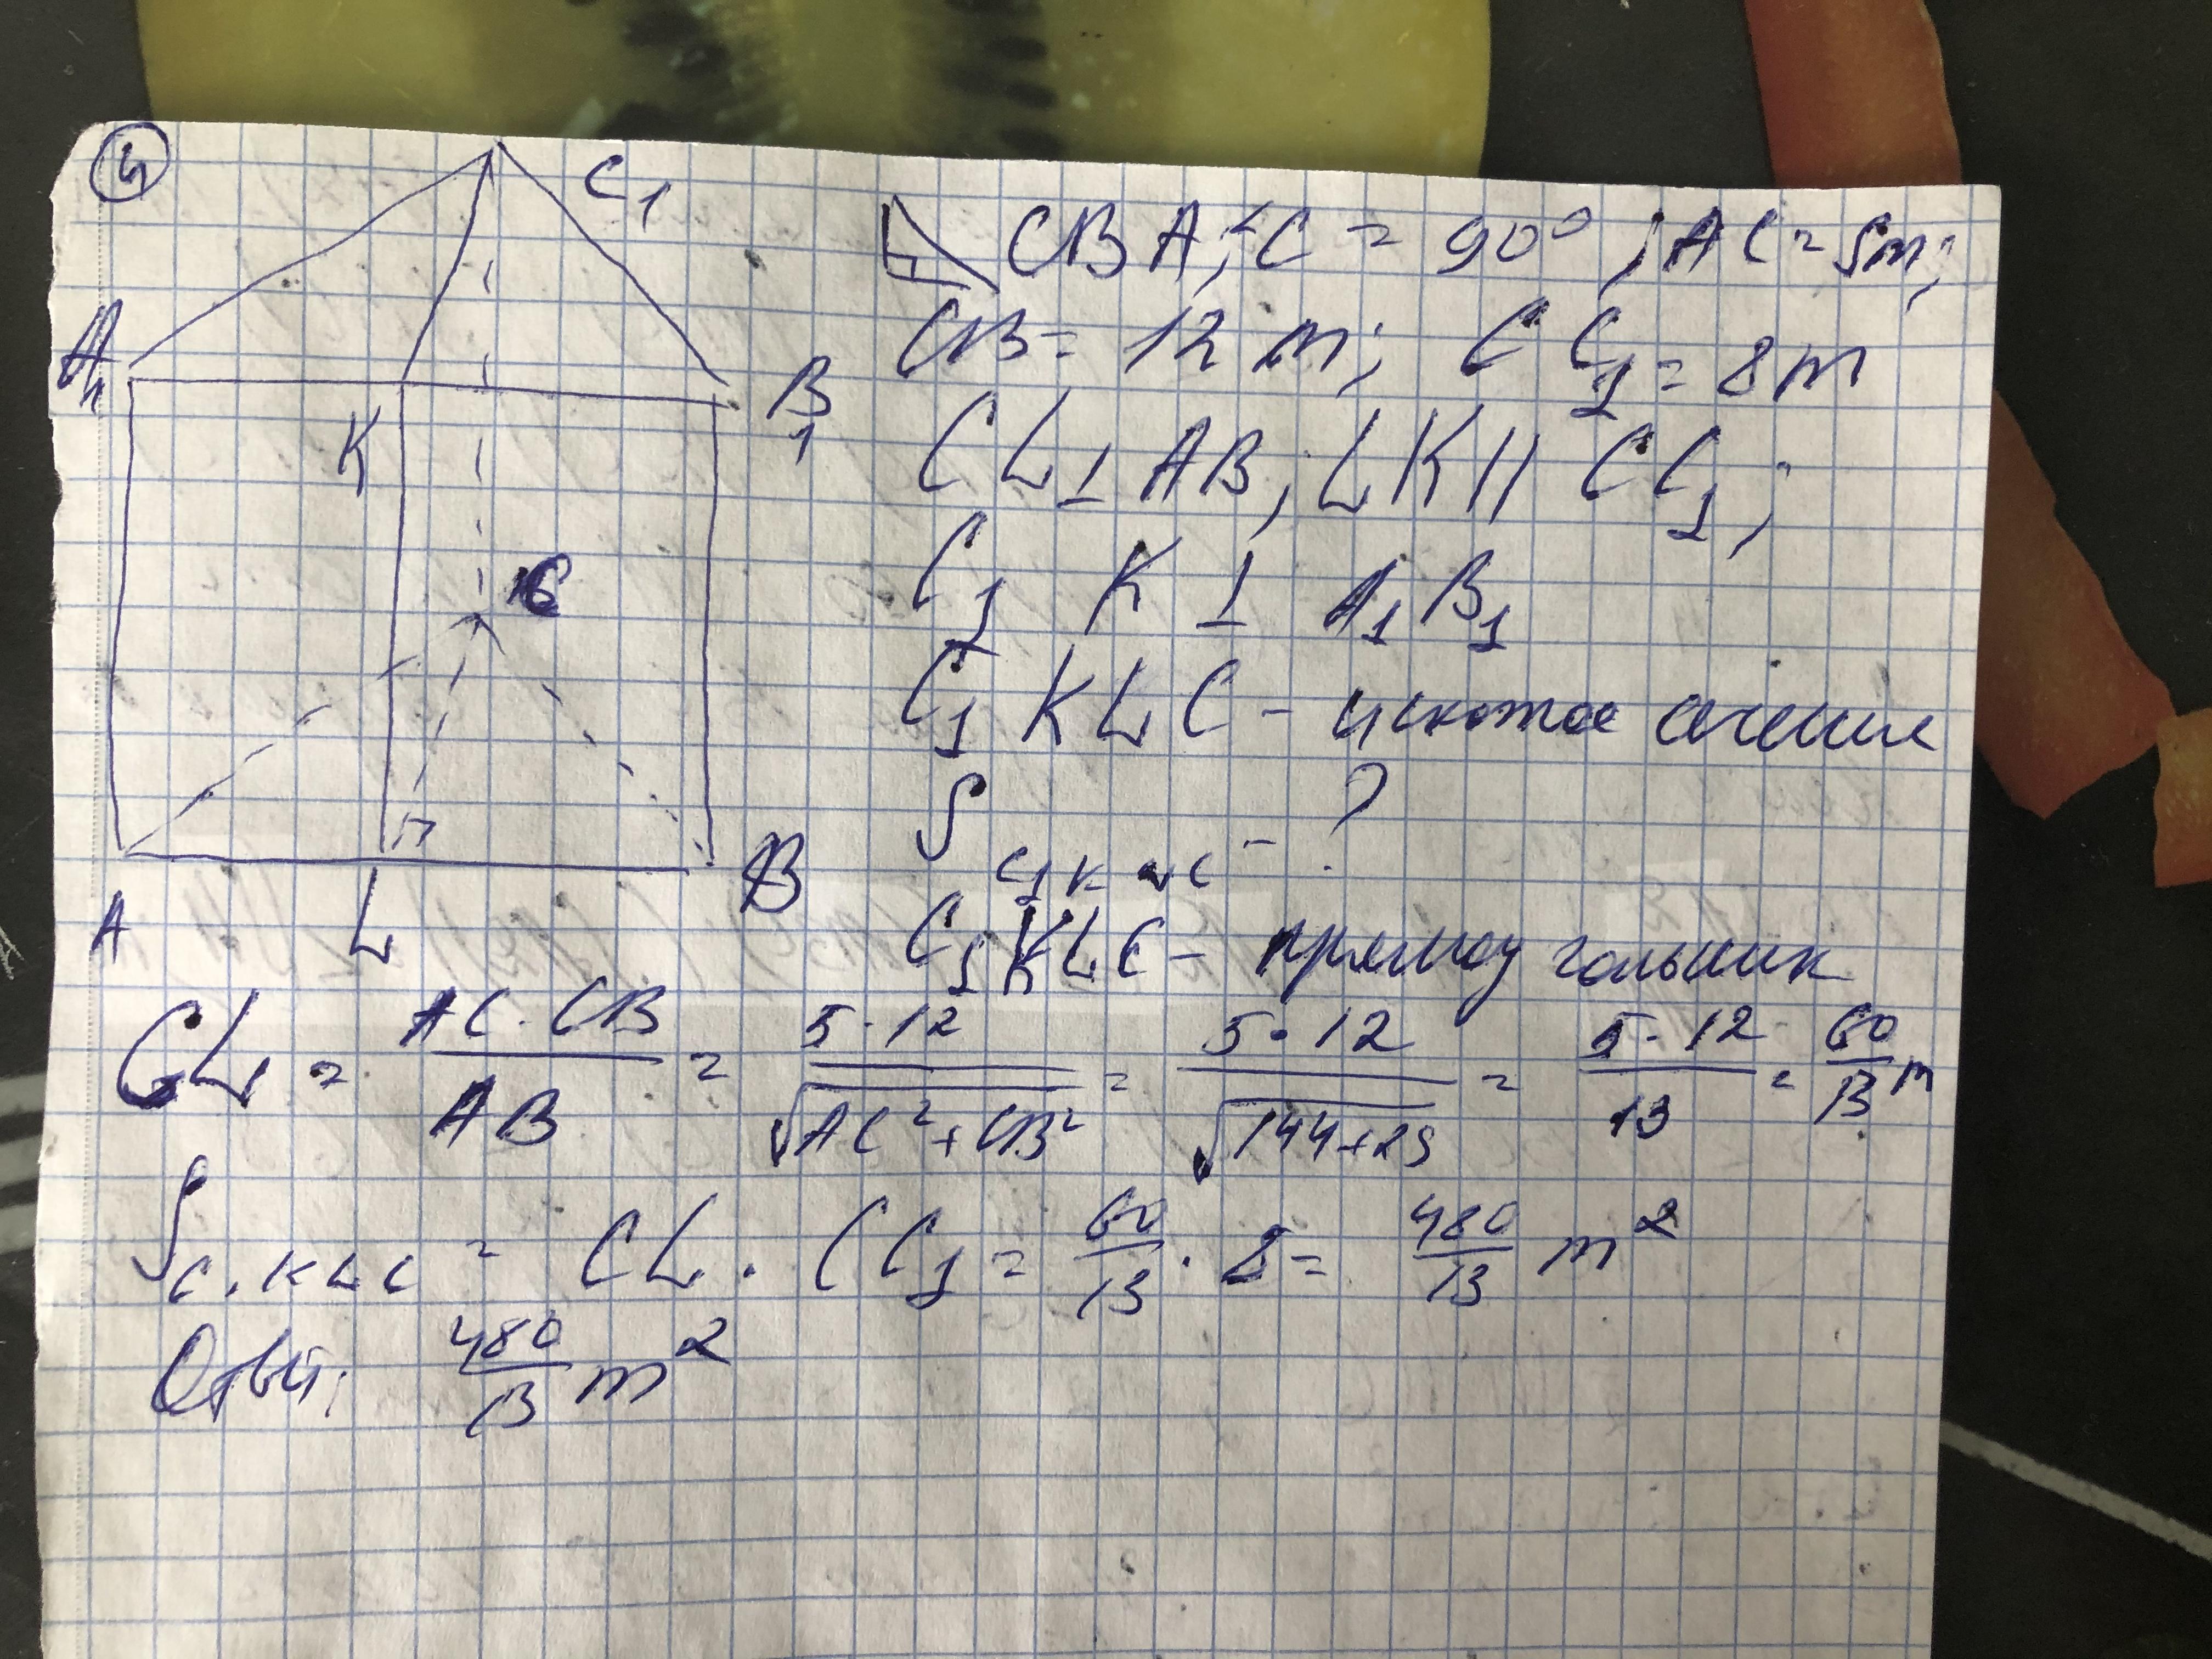 4
C₁
A₁
B₁
K
C
A
L
B
△ CBA; ∠C = 90°; AC = 5m;
CB = 12 m; CC₁ = 8 m
CL ⊥ AB; LK || CC₁;
C₁K ⊥ A₁B₁
C₁KLC - искомое сечение
S C₁KLC - ?
C₁KLC - прямоугольник
CL = AC·CB/AB = 5·12/√(AC²+CB²) = 5·12/√(144+25) = 5·12/13 = 60/13 m
S C₁KLC = CL · CC₁ = 60/13 · 8 = 480/13 m²
Ответ: 480/13 m²